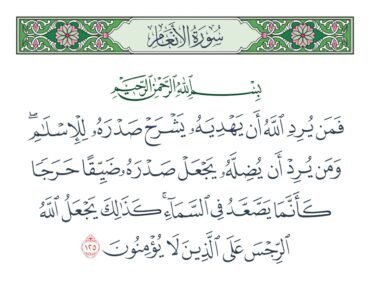 سُورَةُ الأَنْعَامِ
بِسْمِ ٱللَّهِ ٱلرَّحْمَٰنِ ٱلرَّحِيمِ
فَمَن يُرِدِ ٱللَّهُ أَن يَهْدِيَهُۥ يَشْرَحْ صَدْرَهُۥ لِلْإِسْلَٰمِۖ
وَمَن يُرِدْ أَن يُضِلَّهُۥ يَجْعَلْ صَدْرَهُۥ ضَيِّقًا حَرَجًا
كَأَنَّمَا يَصَّعَّدُ فِي ٱلسَّمَآءِۚ كَذَٰلِكَ يَجْعَلُ ٱللَّهُ
ٱلرِّجْسَ عَلَى ٱلَّذِينَ لَا يُؤْمِنُونَ ١٢٥